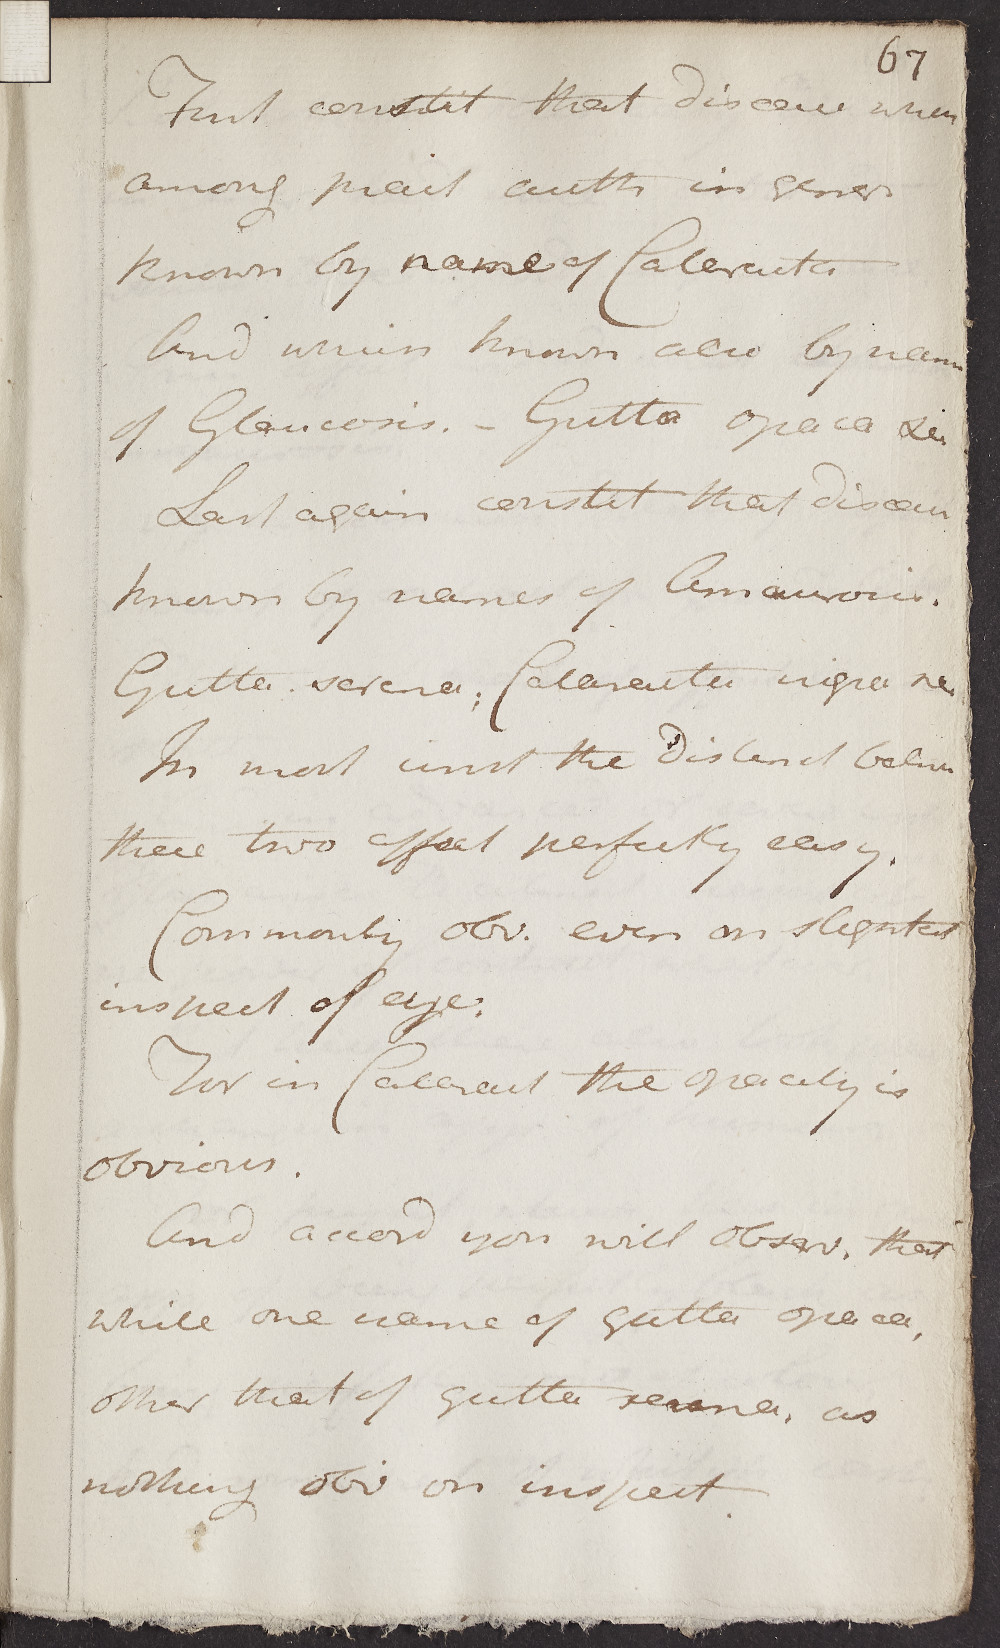 67
First constit that disease when
among pract auth in gener
known by name of Cataracta
And which known also by name
of Glaucosis. - Gutta opaca &c
Last again constit that disease
known by names of Amaurosis.
Gutta serena; Cataracta nigra &c
In most inst the Distinct betwn
these two affect perfectly easy.
Commonly obv. even on slightest
inspect of eye.
For in Cataract the opacity is
obvious.
And accord you will observ. that
while one name of gutta opaca,
other that of gutta serena, as
nothing obv on inspect.